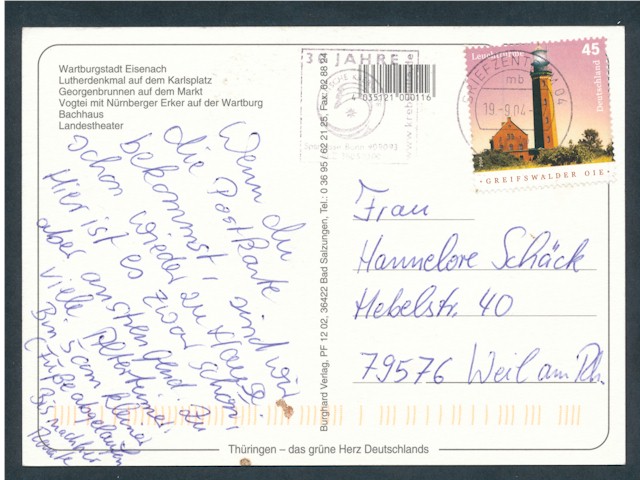 Wartburgstadt Eisenach
Lutherdenkmal auf dem Karlsplatz
Georgenbrunnen auf dem Markt
Vogtei mit Nürnberger Erker auf der Wartburg
Bachhaus
Landestheater
Wenn du
die Postkarte
bekommst, sind wir
schon wieder zu Hause.
Hier ist es zwar schön
aber anstrengend. Zu
viele Altertümer.
Bin
(Füße abgelaufen
Bis nachher
Renate
Burghard Verlag, PF 12 02, 36422 Bad Salzungen, Tel.: 0 36 95 / 62 21 25, Fax: 62 88 24
JAHRE
4 035121 000116
BRIEFZENTRUM 04
mb
19-9.04
Leuchttürme
45
Deutschland
GREIFSWALDER OIE
Frau
Hannelore Schäck
Hebelstr. 40
79576 Weil am Rh.
Thüringen – das grüne Herz Deutschlands